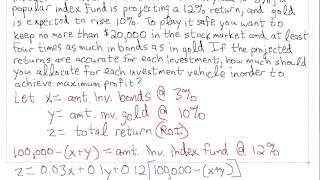 popular index fund is projecting a 12% return, and gold
is expected to rise 10%. To play it safe you want to
keep no more than $20,000 in the stock market and at least
four times as much in bonds as in gold. If the projected
returns are accurate for each investment, how much should
you allocate for each investment vehicle inorder to
achieve maximum profit?
Let x= amt. inv. bonds @ 3%
y= amt. inv. gold @ 10%
z= total return (ROI)
100,000-(x+y)= amt. inv. index fund @ 12%
z= 0.03x+0.1y+0.12[100,000-(x+y)]